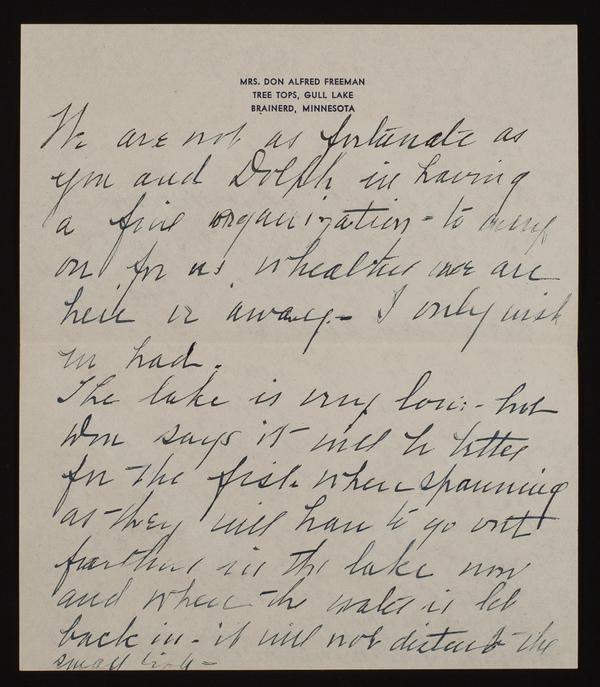 MRS. DON ALFRED FREEMAN
TREE TOPS, GULL LAKE
BRAINERD, MINNESOTA
We are not as fortunate as
you and Dolph in having
a fine organization - to carry
on for us whealther we are
here or away - I only wish
we had.
The lake is very low - but
Don says it will be better
for the fish when spawning
as they will have to go out
farther in the lake now
and when the water is let
back in - it will not disturb the
small fish -